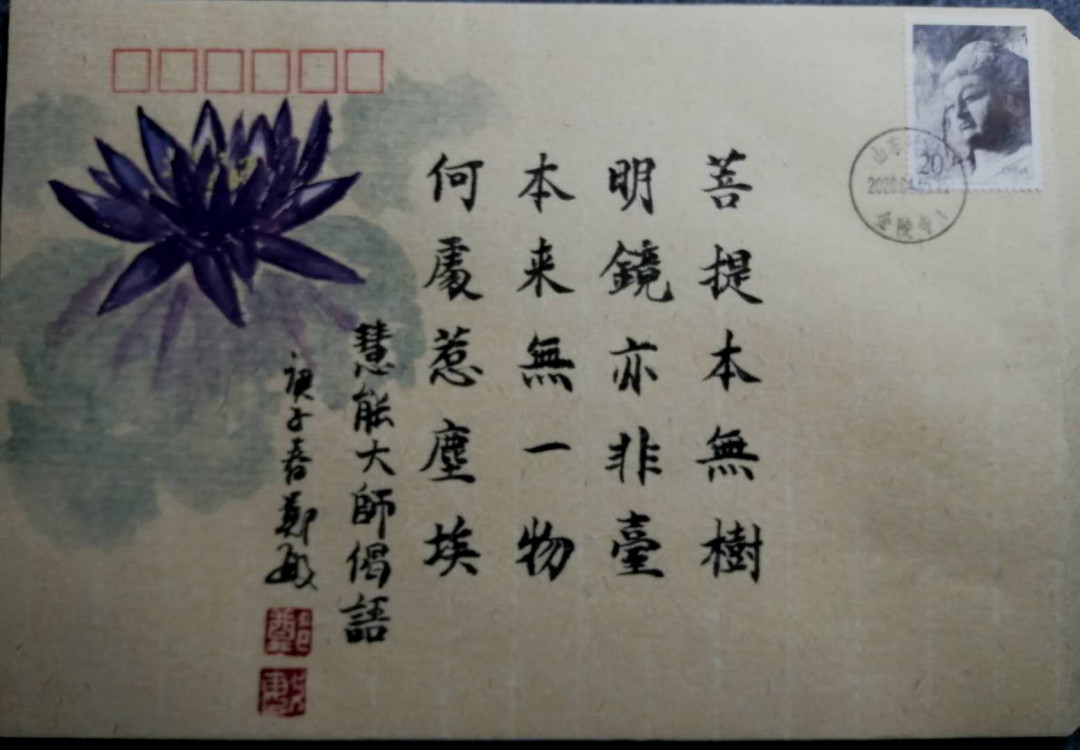 菩提本無樹
明鏡亦非臺
本来無一物
何處惹塵埃
慧能大師偈語
庚子春鄭敏
20
山東
2020.04
金陵寺1